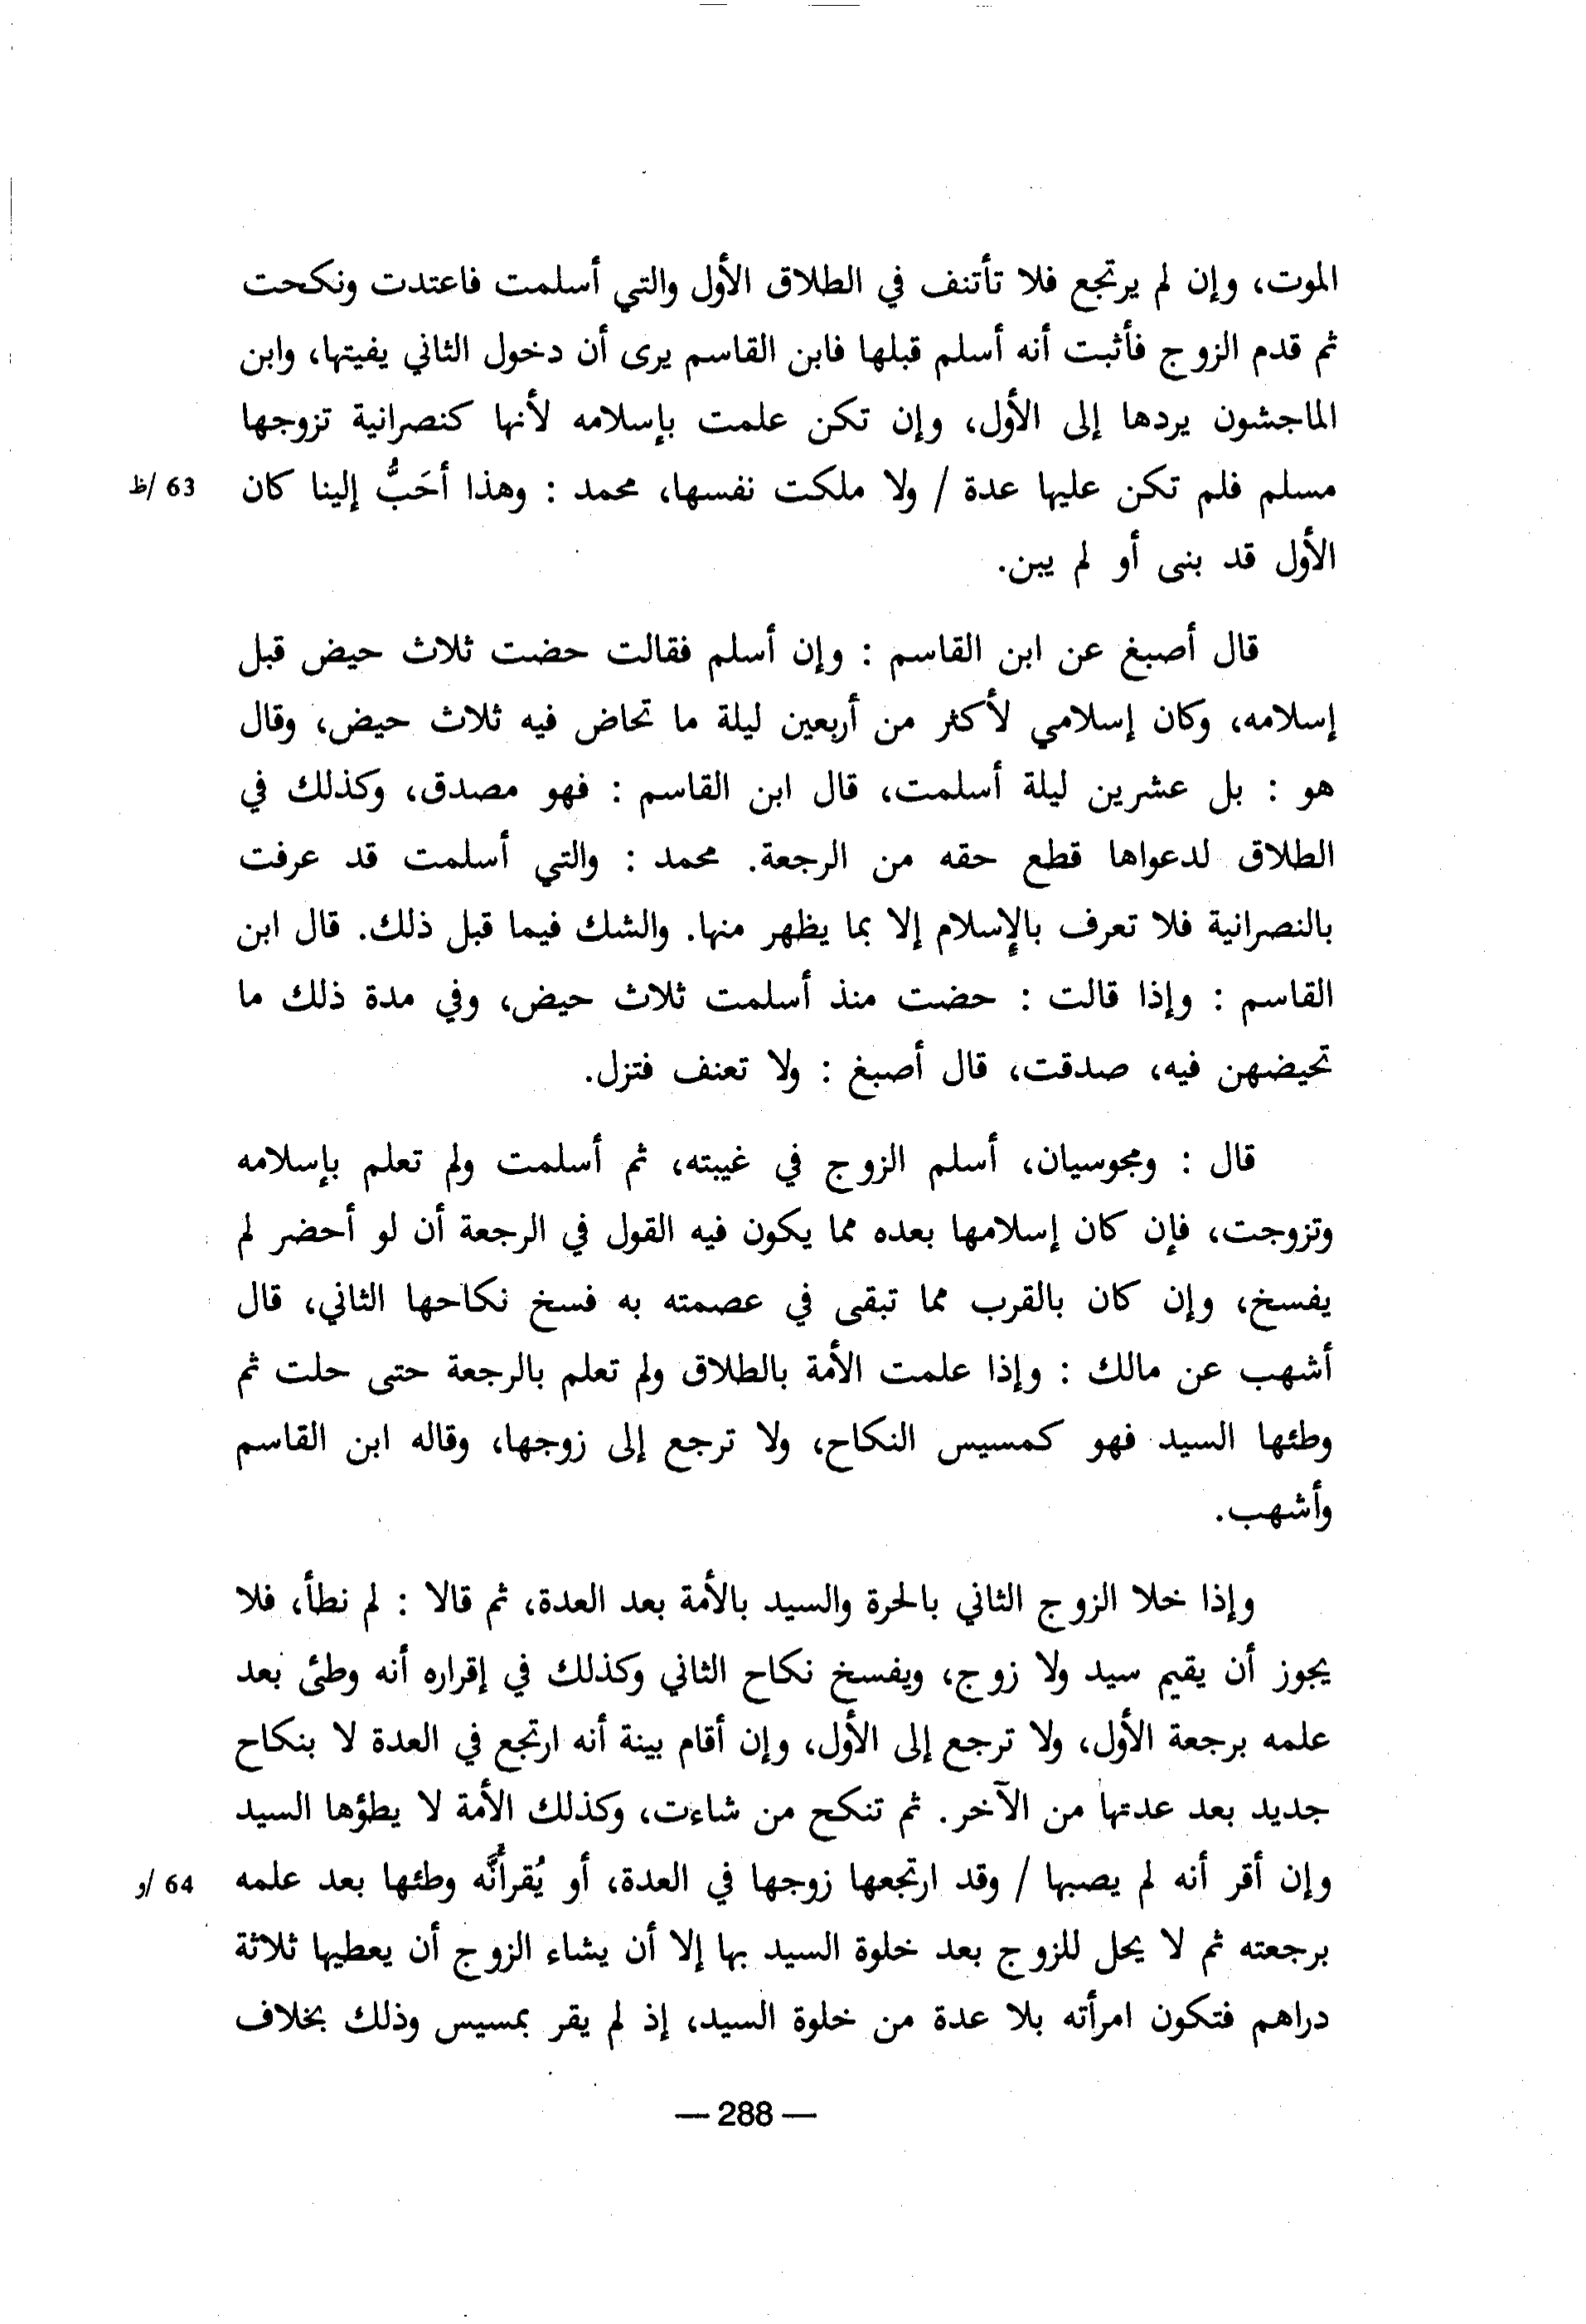 الموت، وإن لم يرتجع فلا تأتنف في الطلاق الأول والتي أسلمت فاعتدت ونكحت
ثم قدم الزوج فأثبت أنه أسلم قبلها فابن القاسم يرى أن دخول الثاني يفيتها، وابن
الماجشون يردها إلى الأول، وإن تكن علمت بإسلامه لأنها كنصرانية تزوجها
مسلم فلم تكن عليها عدة / ولا ملكت نفسها، محمد : وهذا أحَبُّ إلينا كان
63 /ظ
الأول قد بنى أو لم يبن.
قال أصبغ عن ابن القاسم : وإن أسلم فقالت حضت ثلاث حيض قبل
إسلامه، وكان إسلامي لأكثر من أربعين ليلة ما تحاض فيه ثلاث حيض، وقال
هو : بل عشرين ليلة أسلمت، قال ابن القاسم : فهو مصدق، وكذلك في
الطلاق لدعواها قطع حقه من الرجعة. محمد : والتي أسلمت قد عرفت
بالنصرانية فلا تعرف بالإسلام إلا بما يظهر منها. والشك فيما قبل ذلك. قال ابن
القاسم : وإذا قالت : حضت منذ أسلمت ثلاث حيض، وفي مدة ذلك ما
تحيضهن فيه، صدقت، قال أصبغ : ولا تعنف فتزل.
قال : ومجوسيان، أسلم الزوج في غيبته، ثم أسلمت ولم تعلم بإسلامه
وتزوجت، فإن كان إسلامها بعده مما يكون فيه القول في الرجعة أن لو أحضر لم
يفسخ، وإن كان بالقرب مما تبقى في عصمته به فسخ نكاحها الثاني، قال
أشهب عن مالك : وإذا علمت الأمة بالطلاق ولم تعلم بالرجعة حتى حلت ثم
وطئها السيد فهو كمسيس النكاح، ولا ترجع إلى زوجها، وقاله ابن القاسم
وأشهب.
وإذا خلا الزوج الثاني بالحرة والسيد بالأمة بعد العدة، ثم قالا : لم نطأ، فلا
يجوز أن يقيم سيد ولا زوج، ويفسخ نكاح الثاني وكذلك في إقراره أنه وطئ بعد
علمه برجعة الأول، ولا ترجع إلى الأول، وإن أقام بينة أنه ارتجع في العدة لا بنكاح
جديد بعد عدتها من الآخر. ثم تنكح من شاءت، وكذلك الأمة لا يطؤها السيد
وإن أقر أنه لم يصبها / وقد ارتجعها زوجها في العدة، أو يُقرأنَّه وطئها بعد علمه
64 /و
برجعته ثم لا يحل للزوج بعد خلوة السيد بها إلا أن يشاء الزوج أن يعطيها ثلاثة
دراهم فتكون امرأته بلا عدة من خلوة السيد، إذ لم يقر بمسيس وذلك بخلاف
— 288 —